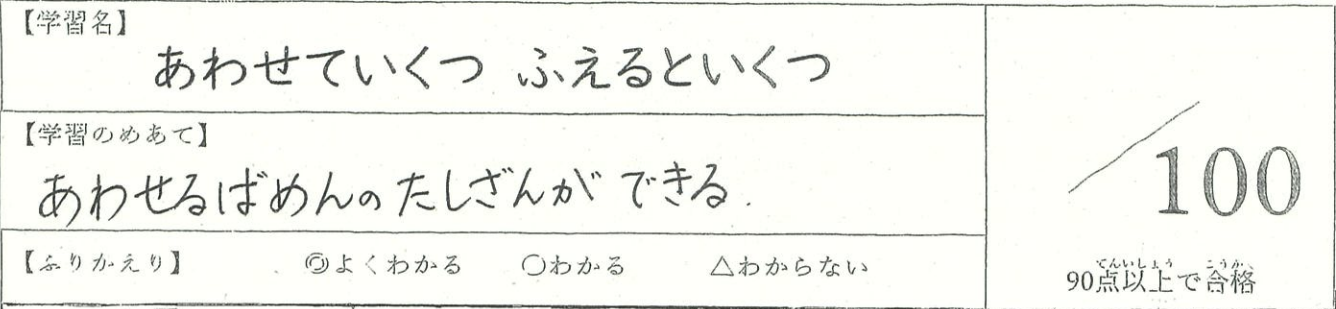 【学習名】
あわせていくつ ふえるといくつ
【学習のめあて】
あわせるばめんのたしざんが できる.
【ふりかえり】 ◎よくわかる ○わかる △わからない
/100
てんいじょう ごうかく
90点以上で合格